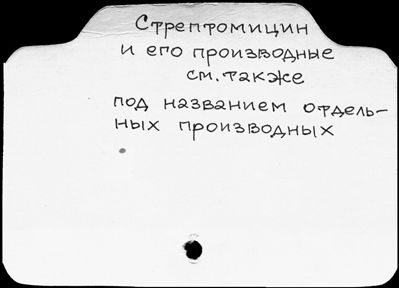 Стрептомицин
и его производные
см. также
под названием отдель-
ных производных